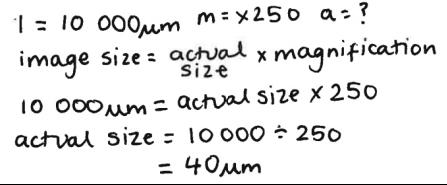 I = 10 000μm m = x250 a = ?
image size = actual size x magnification
10 000μm = actual size x 250
actual size = 10000 ÷ 250
= 40μm